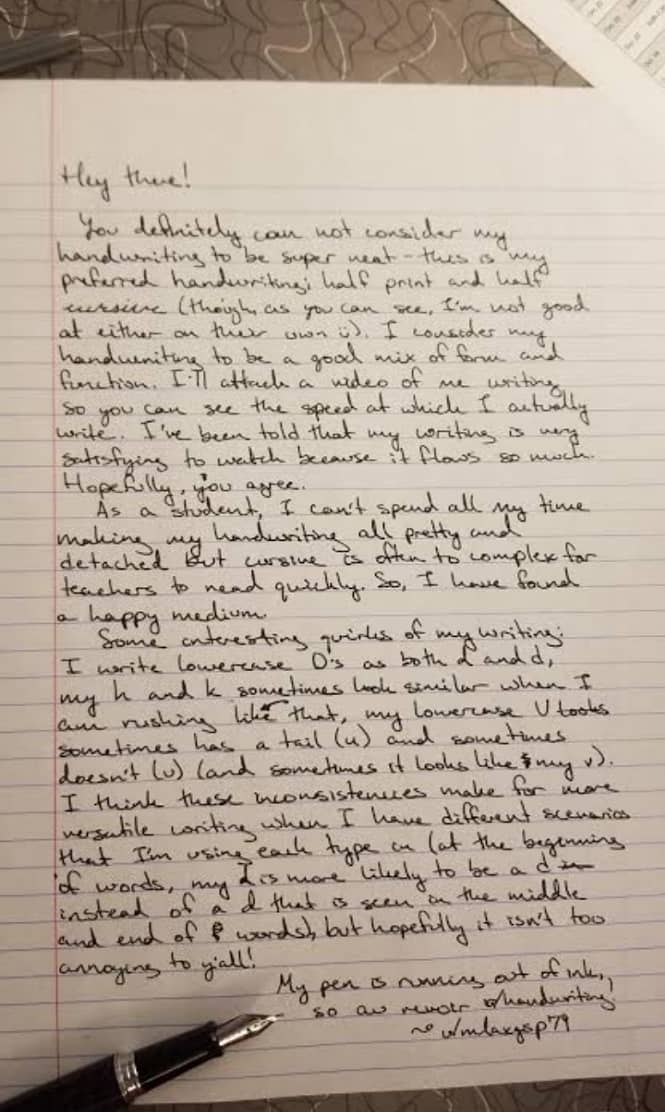 Hey there!
You definitely can not consider my
handwriting to be super neat - this is my
preferred handwriting; half print and half
cursive (though, as you can see, I'm not good
at either on their own ü). I consider my
handwriting to be a good mix of form and
function. I'll attach a video of me writing
so you can see the speed at which I actually
write. I've been told that my writing is very
satisfying to watch because it flows so much.
Hopefully, you agree.
As a student, I can't spend all my time
making my handwriting all pretty and
detached but cursive is often to complex for
teachers to read quickly. So, I have found
a happy medium.
Some interesting quirks of my writing:
I write lowercase D's as both d and d,
my h and k sometimes look similar when I
am rushing like that, my lowercase U looks
sometimes has a tail (u) and sometimes
doesn't (u) (and sometimes it looks like my v).
I think these inconsistencies make for more
versatile writing when I have different scenarios
that I'm using each type in (at the beginning
of words, my d is more likely to be a d in
instead of a d that is seen in the middle
and end of words), but hopefully it isn't too
annoying to y'all!
My pen is running out of ink,
so au revoir r/handwriting.
~ u/mlaxgsp79